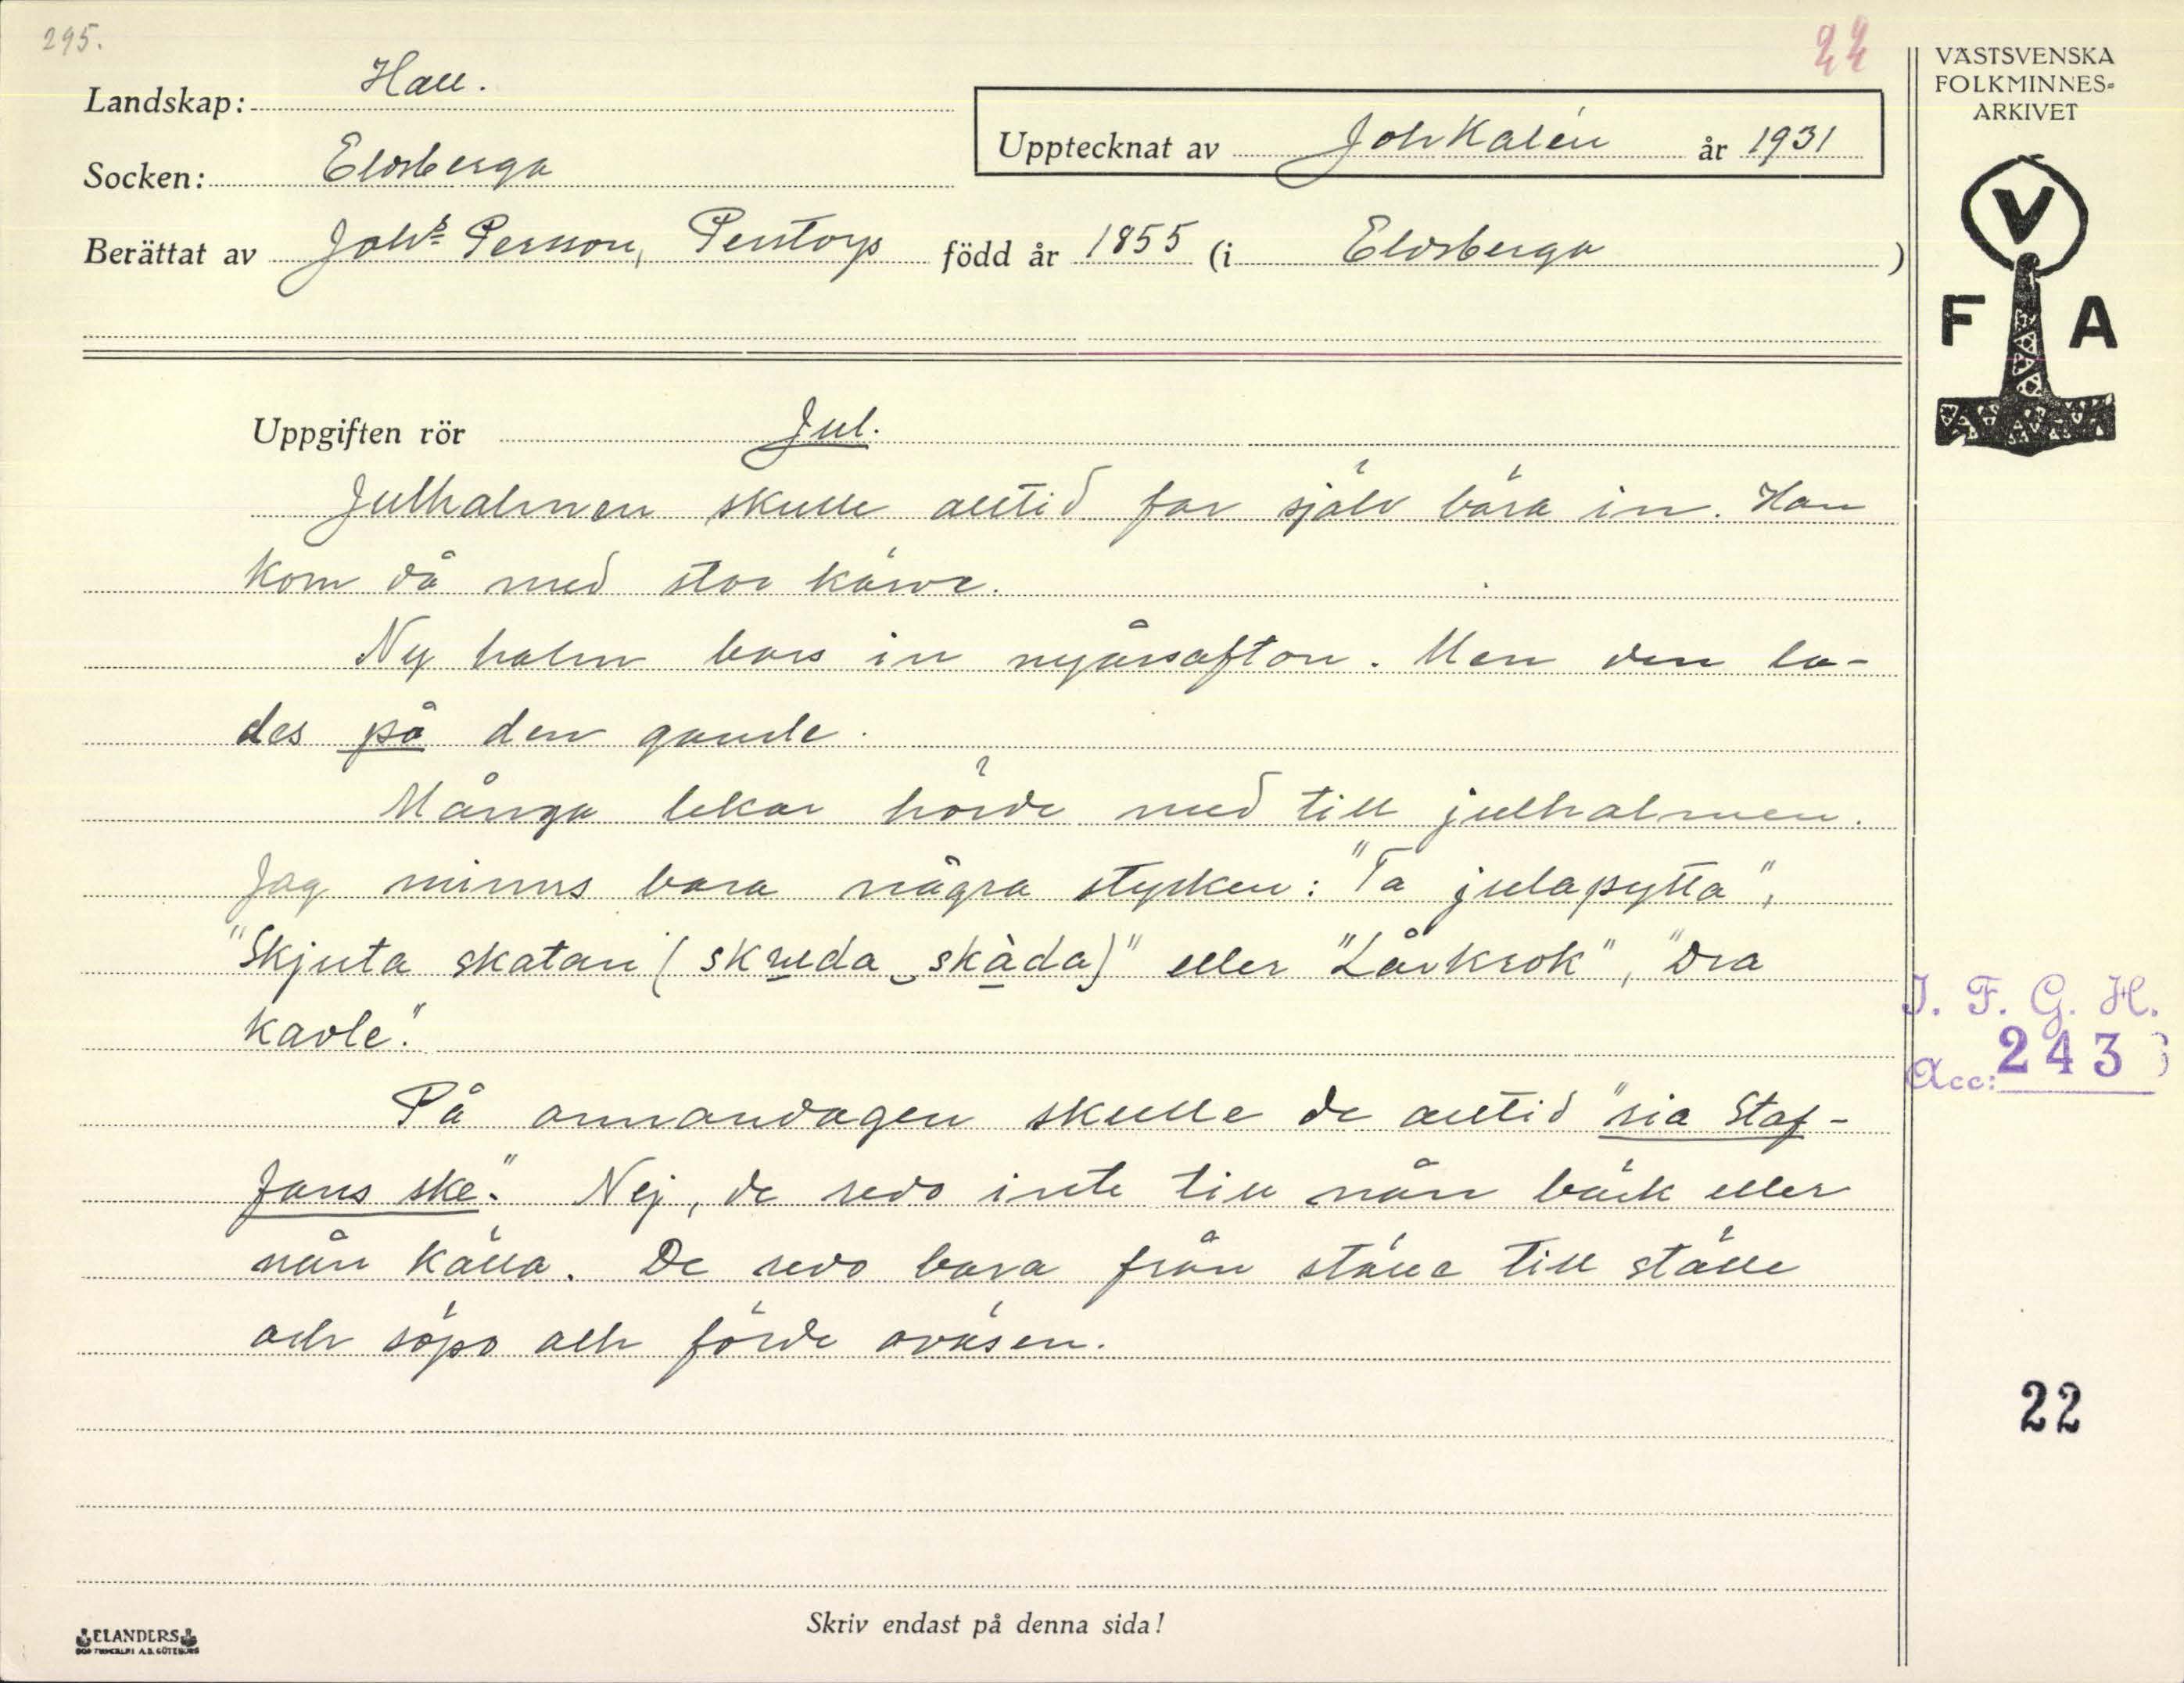 295.
22
VÄSTSVENSKA
FOLKMINNES-
ARKIVET
Landskap: Hall.
Upptecknat av Joh Kalén år 1931
Socken: Eldsberga
Berättat av Johs Persson, Perstorp född år 1855 (i Eldsberga )
V
F A
Uppgiften rör Jul.
Julhalmen skulle alltid far själv bära in. Han
kom då med stor kärve.
Ny halm bars in nyårsafton. Men den la-
des på den gamle.
Många lekar hörde med till julhalmen.
Jag minns bara några stycken: "Ta julapytta",
"Skjuta skatan (skuda skàda)" eller "Lårkrok", "Dra
kavle".
På annandagen skulle de alltid "ria Staf-
fans ske". Nej, de redo inte till nån bäck eller
nån källa. De redo bara från ställe till ställe
och söpo och förde oväsen.
I. F. G. H.
Acc: 243
22
Skriv endast på denna sida!
ELANDERS